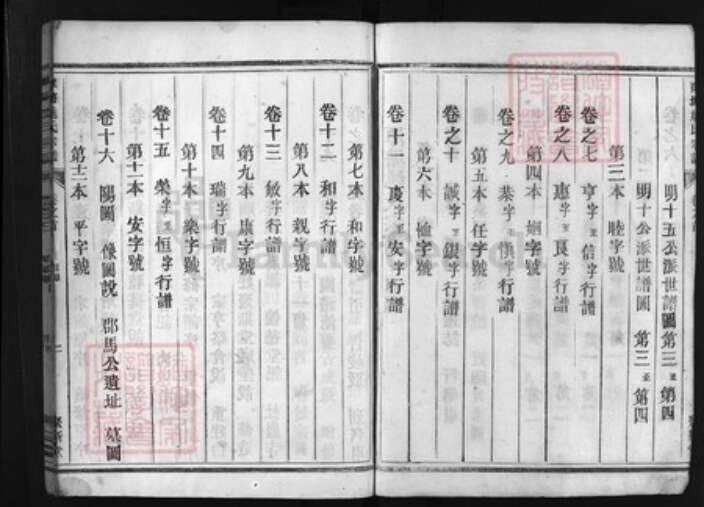 卷之六
明十五公派世譜圖 第三至第四
明十公派世譜圖 第三至第四
第三本 睦字號
卷之七 亨字至信字行譜
卷之八 惠字至良字行譜
第四本 婣字號
卷之九 恭字至慎字行譜
第五本 任字號
卷之十 誠字至銀字行譜
第六本 恤字號
卷十一 慶字至安字行譜
第七本 和字號
卷十二 和字行譜
第八本 親字號
卷十三 敏字行譜
第九本 康字號
卷十四 瑞字行譜
第十本 樂字號
卷十五 榮字至恒字行譜
第十一本 安字號
卷十六 陽圖 像圖說 郡馬公遺址 墓圖
第十二本 平字號
二